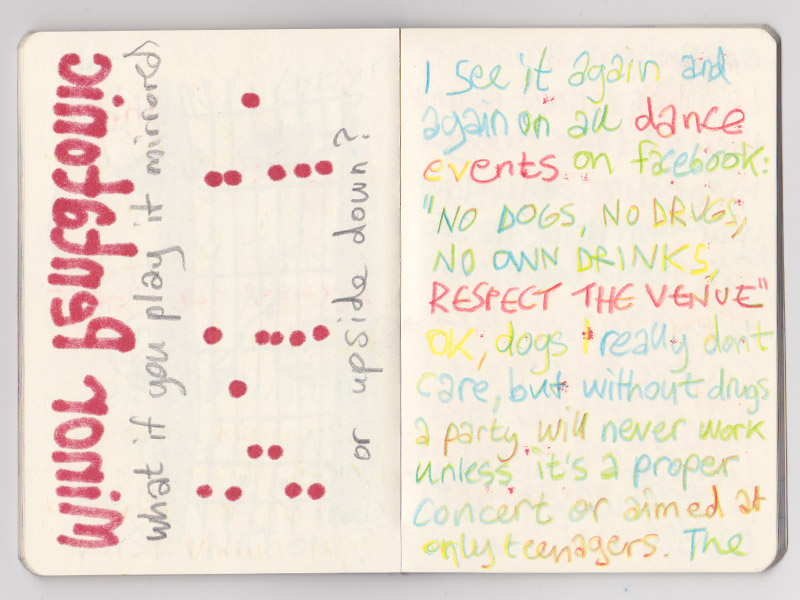 Minor pentatonic
what if you play it mirrored
or upside down?
I see it again and
again on all dance
events on facebook:
"NO DOGS, NO DRUGS,
NO OWN DRINKS,
RESPECT THE VENUE"
OK, dogs I really don't
care, but without drugs
a party will never work
unless it's a proper
concert or aimed at
only teenagers. The